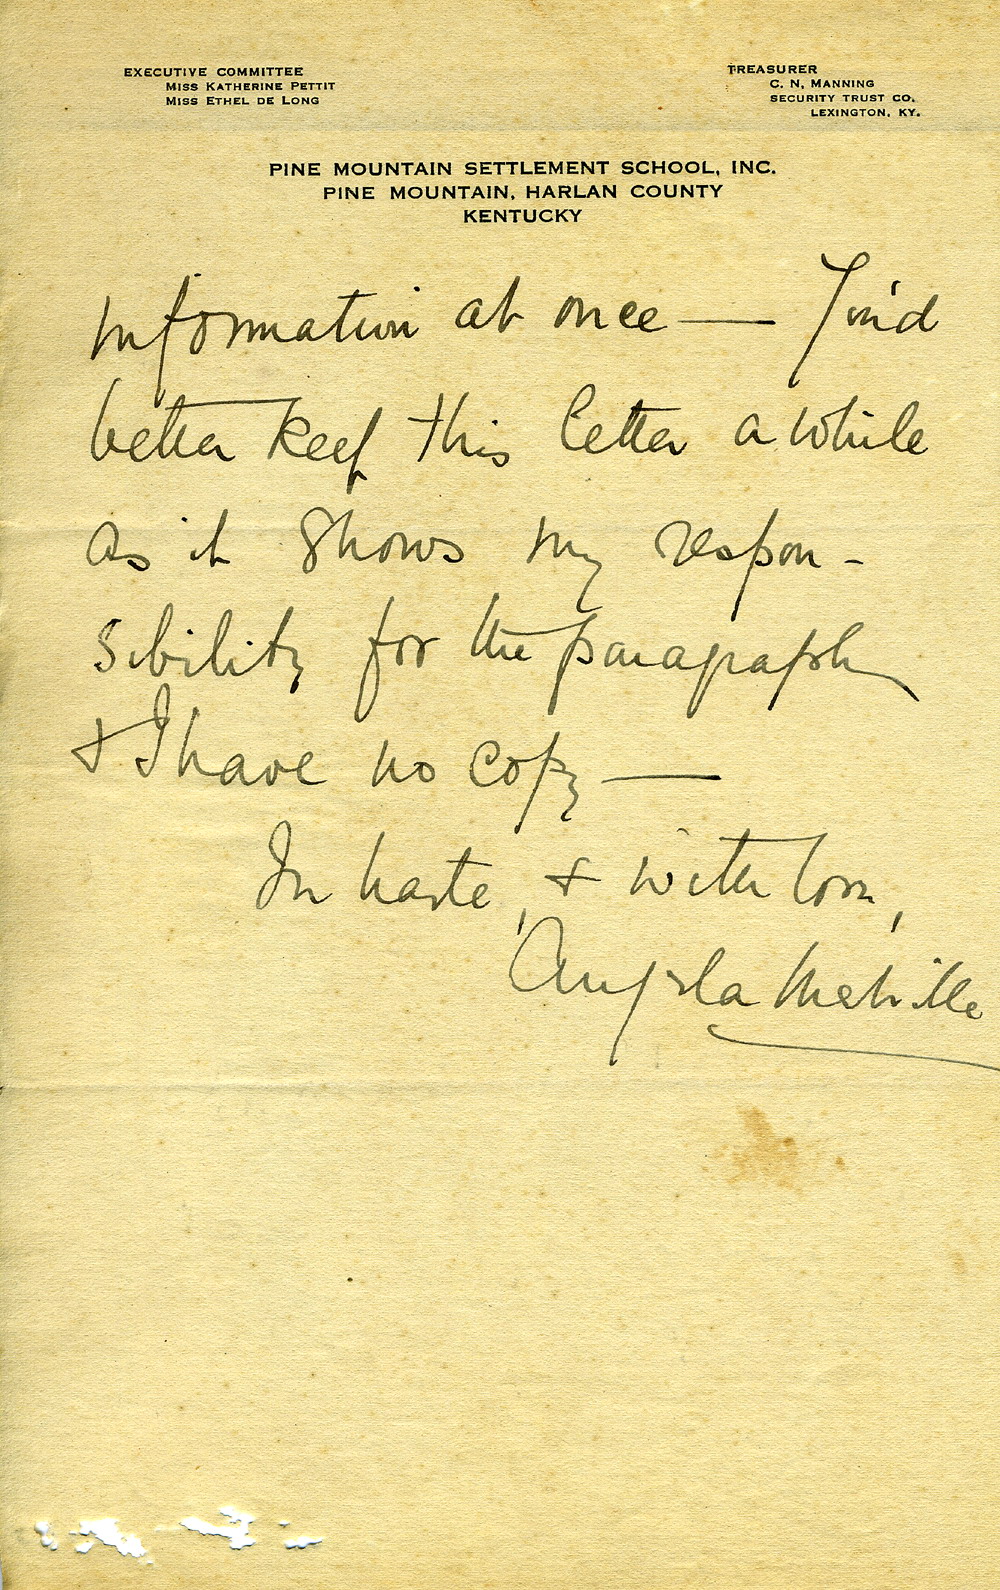 EXECUTIVE COMMITTEE
MISS KATHERINE PETTIT
MISS ETHEL DE LONG
TREASURER
C. N. MANNING
SECURITY TRUST CO.
LEXINGTON, KY.
PINE MOUNTAIN SETTLEMENT SCHOOL, INC.
PINE MOUNTAIN, HARLAN COUNTY
KENTUCKY
information at once — You'd
better keep this letter a while
as it shows my respon-
sibility for the paragraph
& I have no copy —
In haste, & with love,
Angela Melville